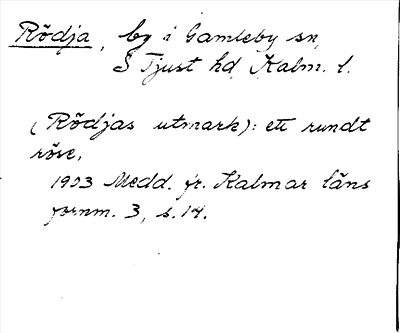 Rödja, by i Gamleby sn,
S Tjust hd, Kalm. l.
(Rödjas utmark): ett rundt
röse,
1903 Medd. fr. Kalmar läns
fornm. 3, s. 14.